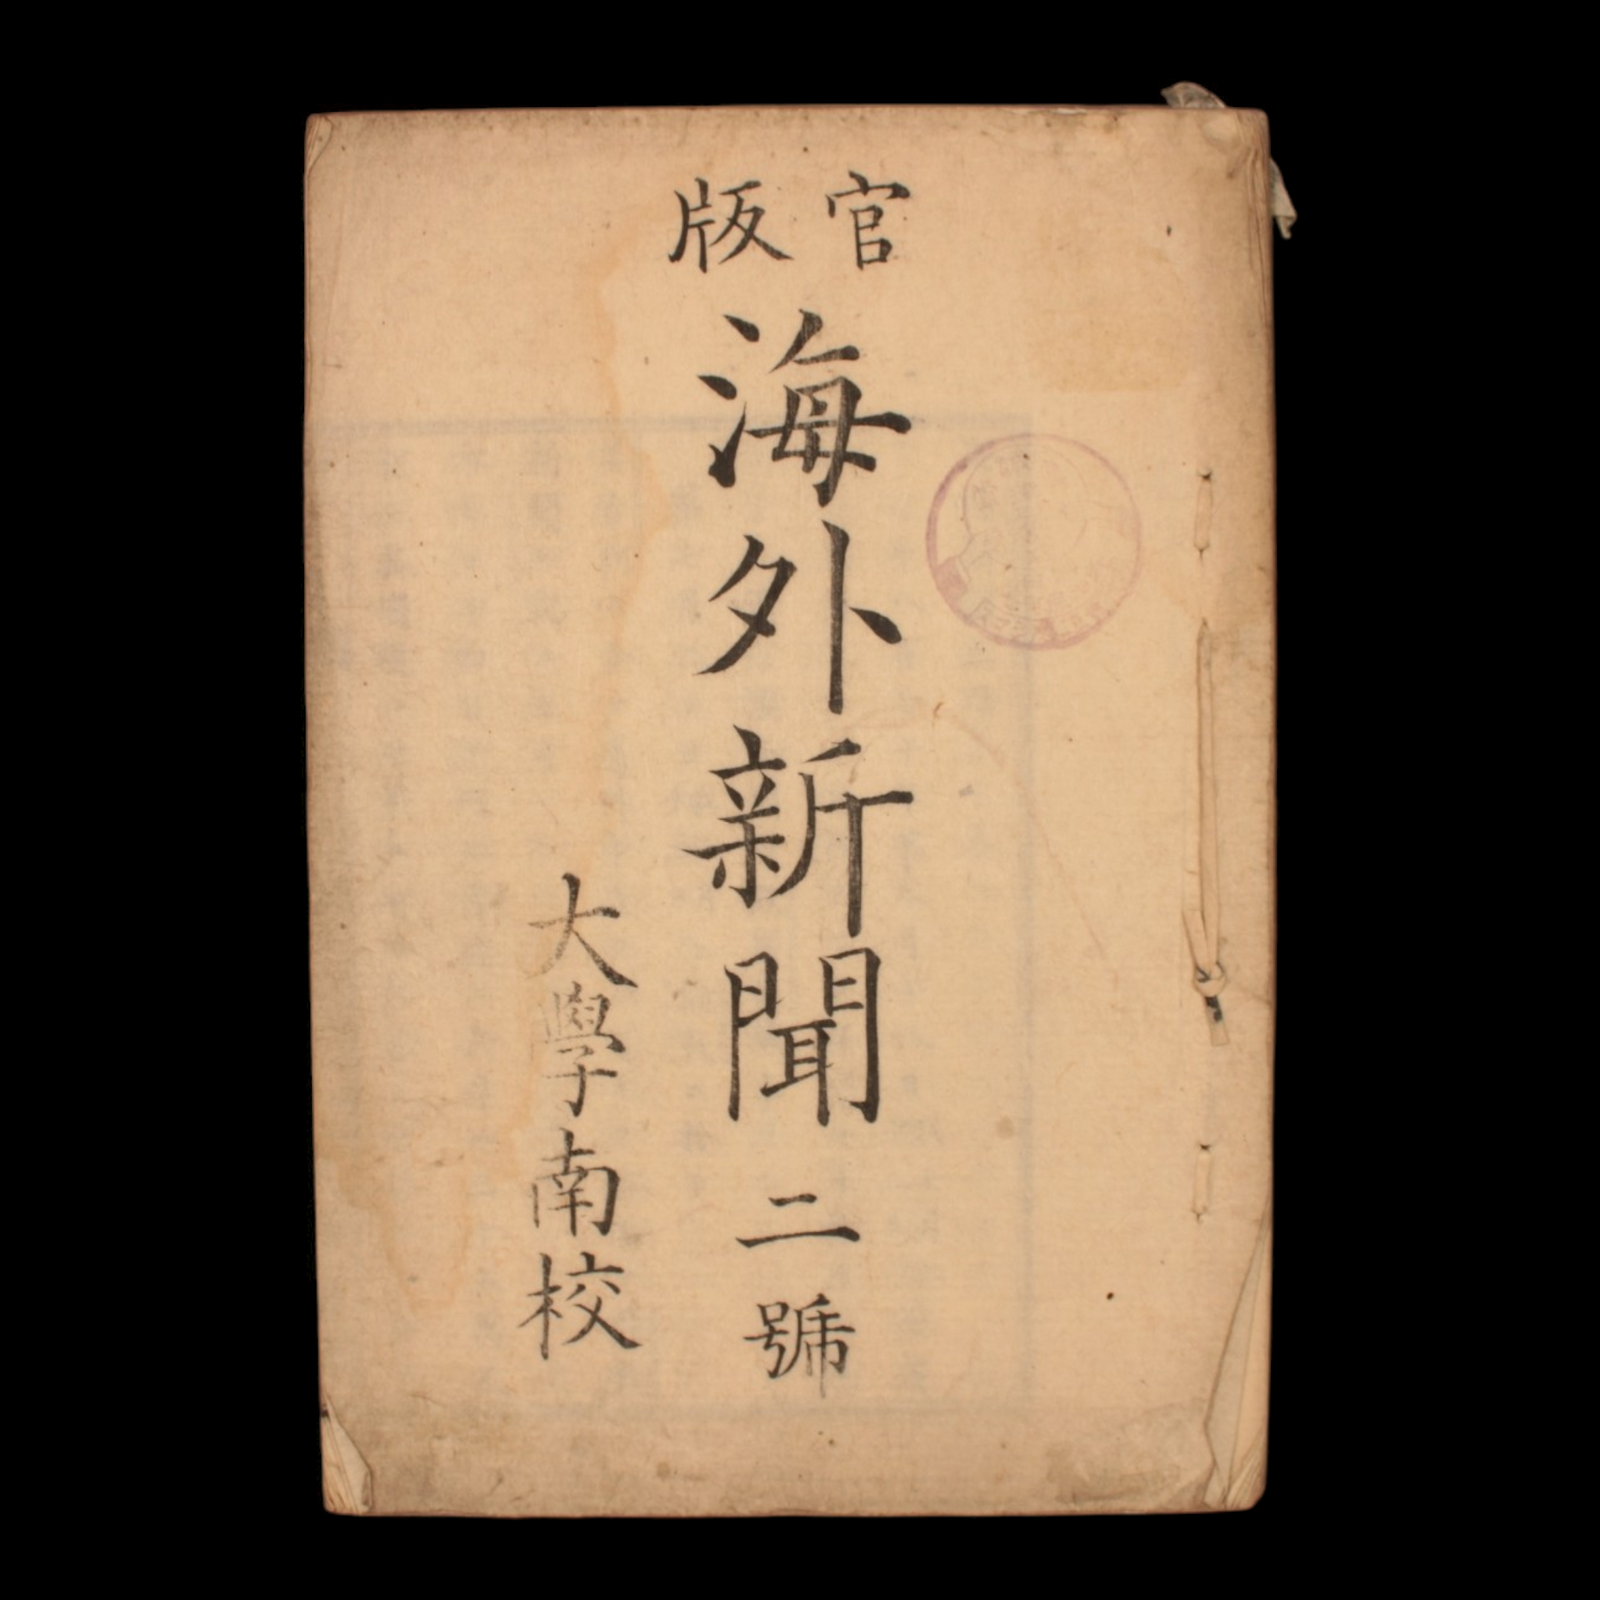 官版
海外新聞二號
大學南校